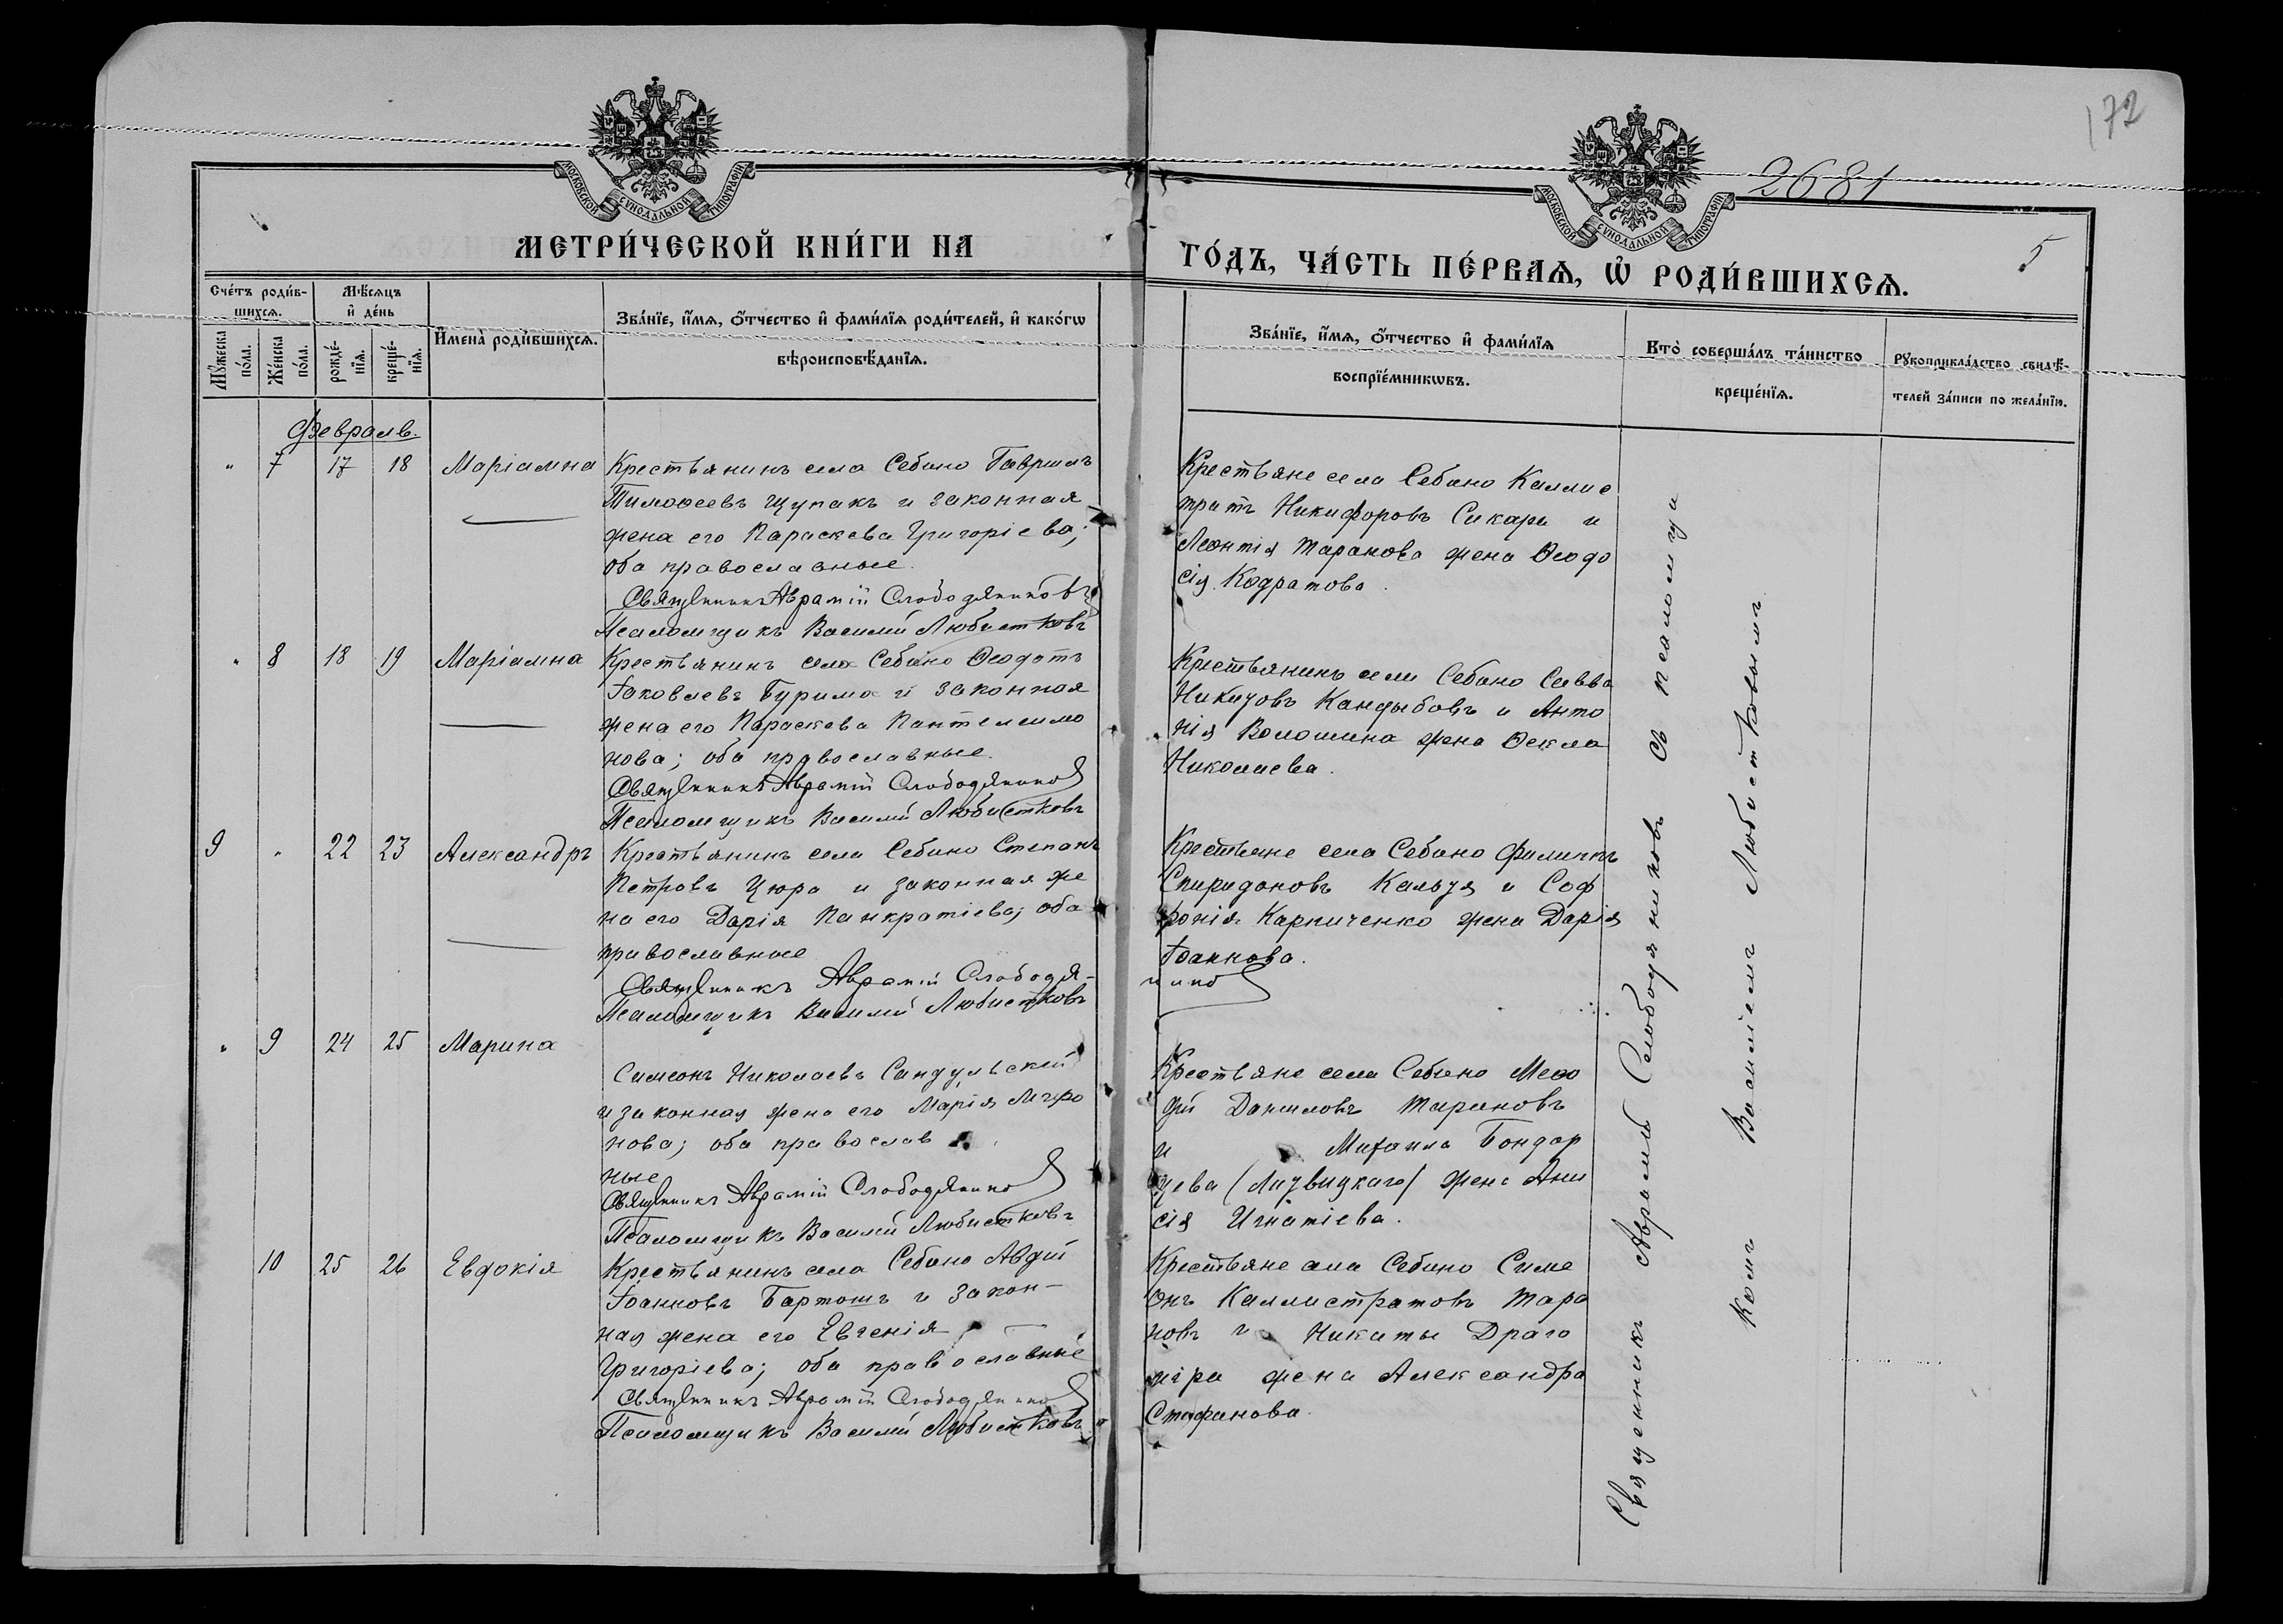 172
2681
5
МОСКОВСКОЙ СУНОДАЛЬНОЙ ТИПОГРАФІИ
МОСКОВСКОЙ СУНОДАЛЬНОЙ ТИПОГРАФІИ
МЕТРИ́ЧЕСКОЙ КНИ́ГИ НА
ГО́ДЪ, ЧА́СТЬ ПЕ́РВАѦ, Ѡ҆ РОДИ́ВШИХСѦ.
Сче́тъ роди́в-
шихсѧ.
Мꙋ́жеска по́ла.
Же́нска по́ла.
Мѣ́сѧцъ
и҆ де́нь
рожде́-
нїѧ.
креще́-
нїѧ.
И҆мена̀ роди́вшихсѧ.
Зва́нїе, и҆́мѧ, ѻ҆́тчество и҆ фами́лїѧ роди́телей, и҆ како́гѡ
вѣроисповѣ́данїѧ.
Зва́нїе, и҆́мѧ, ѻ҆́тчество и҆ фами́лїѧ
воспрїе́мникѡвъ.
Кто̀ соверша́лъ та́инство
креще́нїѧ.
Рꙋкоприкла́дство свидѣ́-
телей за́писи по жела́нїю.
Февраль.
" 7 17 18 Маріамна
Крестьянинъ села Себино Гавриилъ
Тимоѳеевъ Щупакъ и законная
жена его Параскева Григоріева;
оба православные.
Священникъ Аврамій Слободяниковъ
Псаломщикъ Василій Любистковъ
Крестьяне села Себино Каллис
тратъ Никифоровъ Сикаръ и
Леонтія Таранова жена Ѳеодо
сія Кодратова.
" 8 18 19 Маріамна
Крестьянинъ села Себино Ѳеодотъ
Іаковлевъ Бурима и законная
жена его Параскева Пантелеимо
нова; оба православные.
Священникъ Аврамій Слободяников
Псаломщикъ Василій Любистковъ
Крестьянинъ села Себино Савва
Никитовъ Кандыбовъ и Анто
нія Волошина жена Ѳекла
Николаева.
9 " 22 23 Александръ
Крестьянинъ села Себино Степанъ
Петровъ Цюра и законная же
на его Дарія Панкратіева; оба
православные
Священникъ Аврамій Слободя-
ников
Псаломщикъ Василій Любистковъ
Крестьяне села Себино Филиппъ
Спиридоновъ Кальзя и Соф
ронія Карпиченко жена Дарія
Іоаннова.
" 9 24 25 Марина
Симеонъ Николаевъ Сандульскій
и законная жена его Марія Миро
нова; оба православ
ные
Священникъ Аврамій Слободяников
Псаломщикъ Василій Любистковъ
Крестьяне села Себино Меѳо
дій Даниловъ Тарановъ
и Михаила Бондар
жена Ани
сія Игнатіева.
10 25 26 Евдокія
Крестьянинъ села Себино Авдій
Іоанновъ Бартошъ и закон-
ная жена его Евгенія
Григоріева; оба православные
Священникъ Аврамій Слободяников
Псаломщикъ Василій Любистковъ
Крестьяне села Себино Симе
онъ Каллистратовъ Тара
новъ и Никиты Драго
міра жена Александра
Стефанова.
Священникъ Аврамій Слободяниковъ съ псаломщи
комъ Василіемъ Любистковымъ